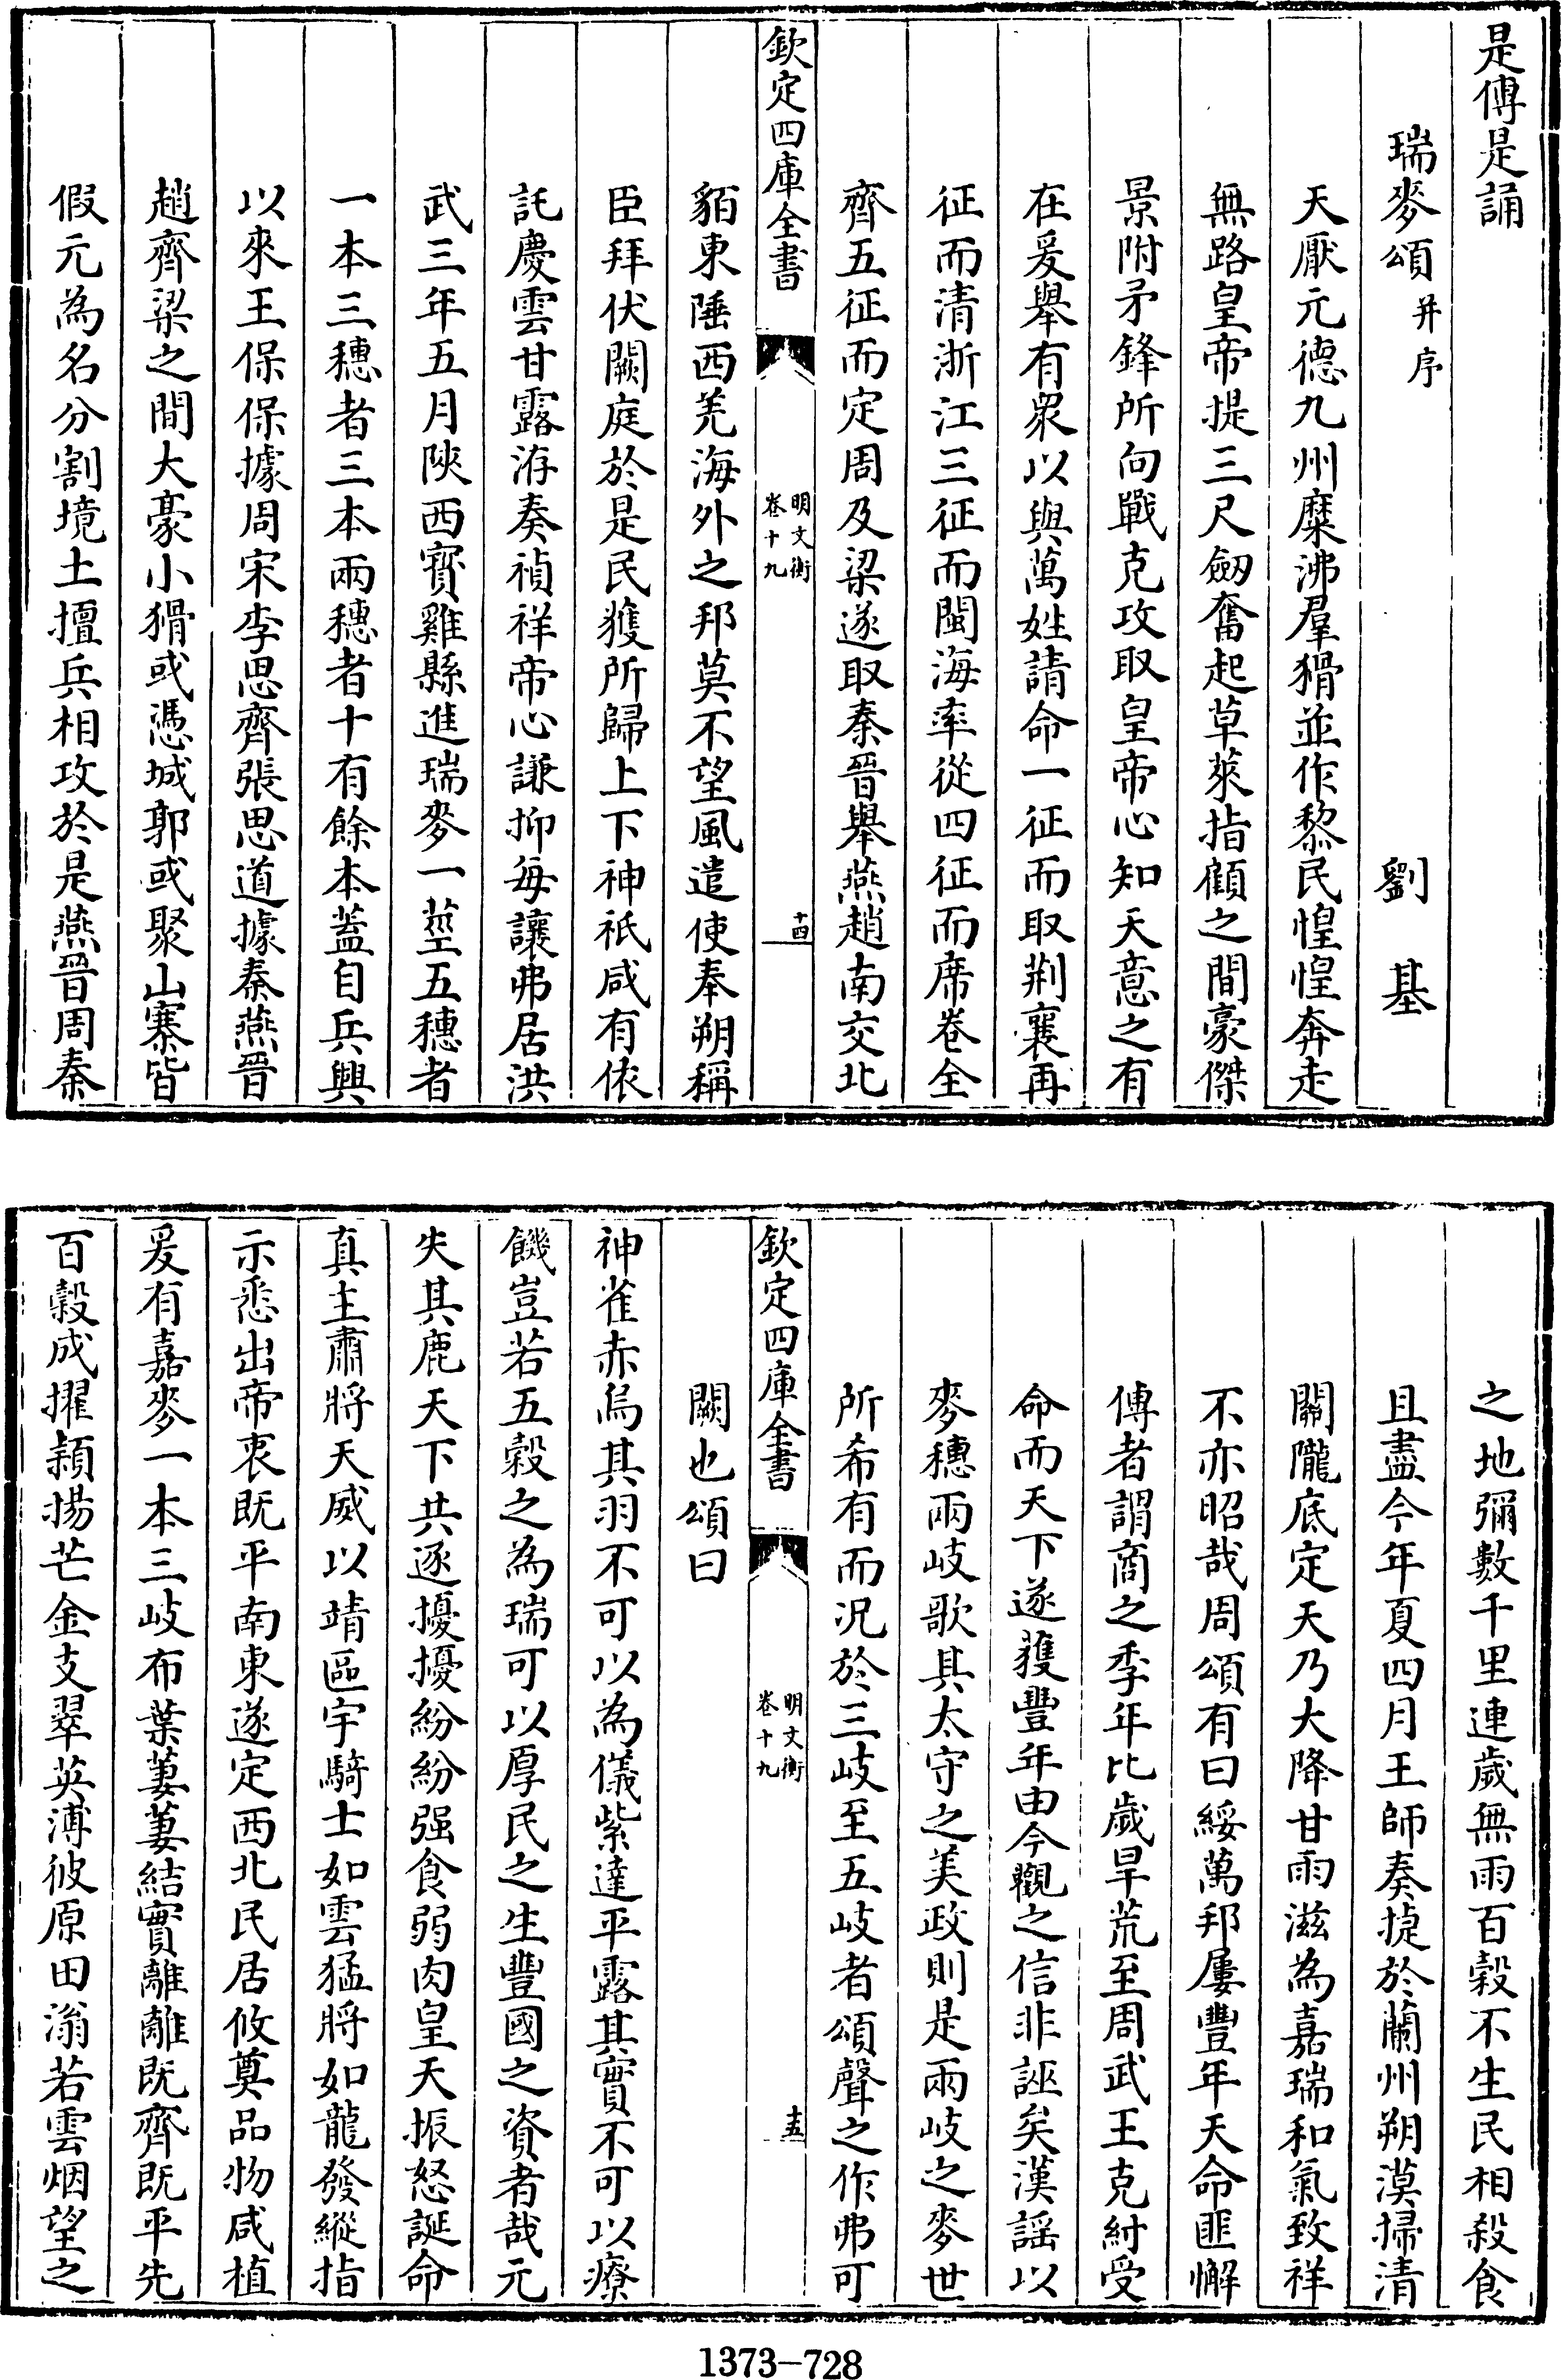 是傅是誦
瑞麥頌并序 劉基
天厭元德九州糜沸羣猾並作黎民惶惶奔走
無路皇帝提三尺劒奮起草萊指顧之間豪傑
景附矛鋒所向戰克攻取皇帝心知天意之有
在爰舉有衆以與萬姓請命一征而取荆襄再
征而清浙江三征而閩海率從四征而席卷全
齊五征而定周及梁遂取秦晉舉燕趙南交北
欽定四庫全書 明文衡 卷十九 十四
貊東陲西羌海外之邦莫不望風遣使奉朔稱
臣拜伏闕庭於是民獲所歸上下神祇咸有依
託慶雲甘露洊奏禎祥帝心謙抑毎讓弗居洪
武三年五月陜西寳雞縣進瑞麥一莖五穗者
一本三穗者三本兩穗者十有餘本葢自兵興
以來王保保據周宋李思齊張思道據秦燕晉
趙齊梁之間大豪小猾或憑城郭或聚山寨皆
假元為名分割境土擅兵相攻於是燕晉周秦
之地彌數千里連歲無雨百榖不生民相殺食
且盡今年夏四月王師奏㨗於蘭州朔漠掃清
關隴底定天乃大降甘雨滋為嘉瑞和氣致祥
不亦昭哉周頌有曰綏萬邦屢豐年天命匪懈
傳者謂商之季年比歲旱荒至周武王克紂受
命而天下遂獲豐年由今觀之信非誣矣漢謡以
麥穗兩岐歌其太守之美政則是兩岐之麥世
所希有而况於三岐至五岐者頌聲之作弗可
欽定四庫全書 明文衡 卷十九 十五
闕也頌曰
神雀赤烏其羽不可以為儀紫達平露其實不可以療
饑豈若五榖之為瑞可以厚民之生豐國之資者哉元
失其鹿天下共逐擾擾紛紛强食弱肉皇天振怒誕命
真主肅將天威以靖區宇騎士如雲猛將如龍發縱指
示悉出帝衷既平南東遂定西北民居攸奠品物咸植
爰有嘉麥一本三岐布葉萋萋結實離離既齊既平先
百榖成擢頴揚芒金支翠英溥彼原田滃若雲烟望之
1373-728